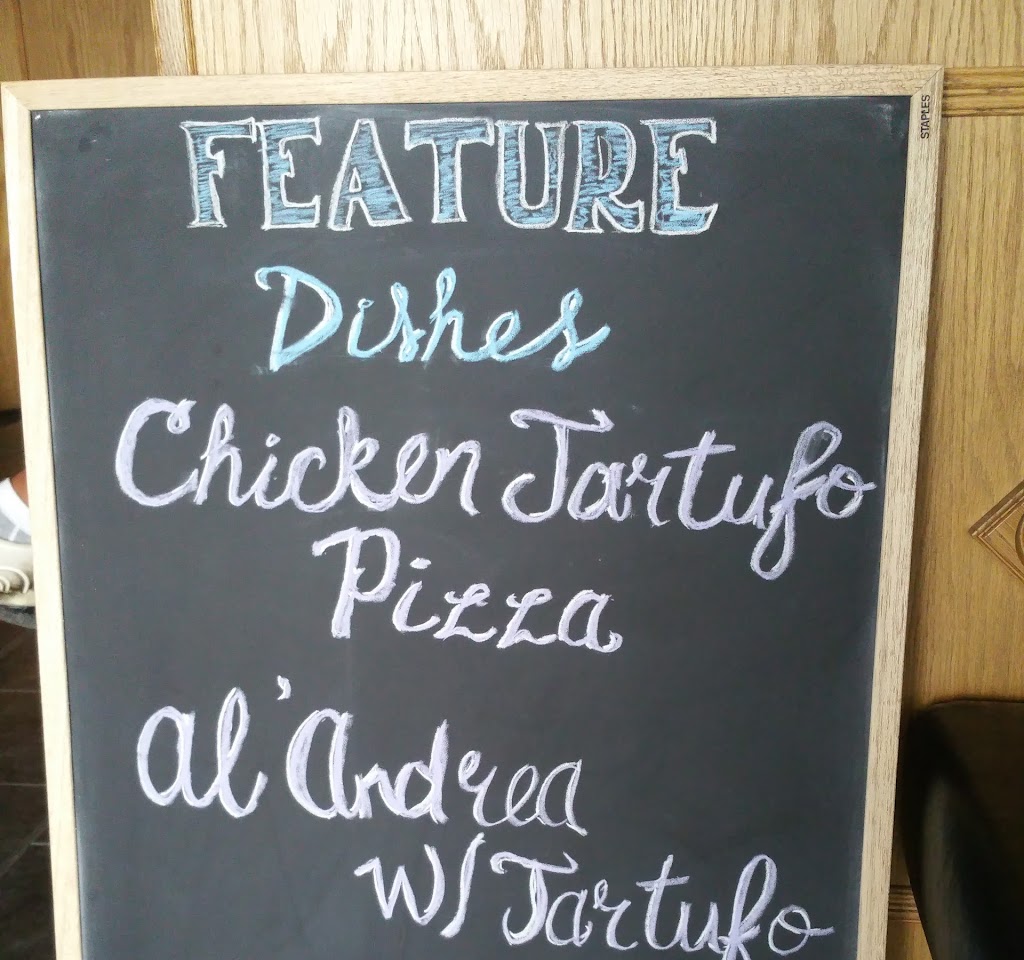 STAPLES
FEATURE
Dishes
Chicken Tartufo
Pizza
al 'Andrea
w/ Tartufo